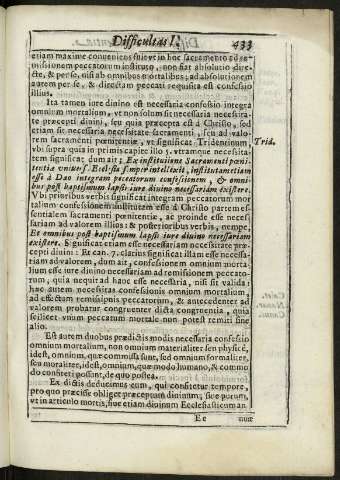 Difficultas I. 433
etiam maximè conveniens fuit ut in hoc sacramento ad re-
missionem peccatorum instituto, non fiat absolutio dire-
ctè, & per se, nisi ab omnibus mortalibus; ad absolutionem
autem per se, & directam peccati requisita est confessio
illius.
Ita tamen iure divino est necessaria confessio integra
omnium mortalium, ut non solum sit necessaria necessita-
te præcepti divini, seu quia præcepta est à Christo, sed
etiam sit necessaria necessitate sacramenti, seu ad valo-
rem sacramenti pœnitentiæ, ut significat Tridentinum,
Trid.
ubi supra quia in primis capite illo 5. utramque necessita-
tem significat dum ait; Ex institutione Sacramenti pœni-
tentiæ univers. Ecclesia semper intellexit, institutam etiam
esse à Deo integram peccatorum confessionem, & omni-
bus post baptismum lapsis iure divino necessariam existere.
Ubi prioribus verbis significat integram peccatorum mor
talium confessionem institutam esse à Christo partem es-
sentialem sacramenti pœnitentiæ, ac proinde esse necessi
ariam ad valorem illius: & posterioribus verbis, nempe,
Et omnibus post baptismum lapsis iure divino necessariam
existere. Significat etiam esse necessariam necessitate præ-
cepti divini: Et can. 7. clarius significat illam esse necessa-
riam ad valorem, dum ait, confessionem omnium morta-
lium esse iure divino necessariam ad remissionem peccato-
rum, quia nequit ad hoc esse necessaria, nisi sit valida:
hæc autem necessitas confessionis omnium mortalium,
ad effectum remissionis peccatorum, & antecedenter ad
valorem probatur congruenter dicta congruentia, quia
scilicet unum peccatum mortale non potest remitti sine
alio.
Est autem duobus prædictis modis necessaria confessio
omnium mortalium, non omnium materialiter seu physicè,
idest, omnium, quæ commissa sunt, sed omnium formaliter,
seu moraliter, idest, omnium, quæ modo humano, & commo
do confiteri possunt, de quo postea.
Ex dictis deducimus eum, qui confitetur tempore,
pro quo præcisè obliget præceptum divinum, sive purum,
ut in articulo mortis, sive etiam divinum Ecclesiasticum an
Ee
nuæ